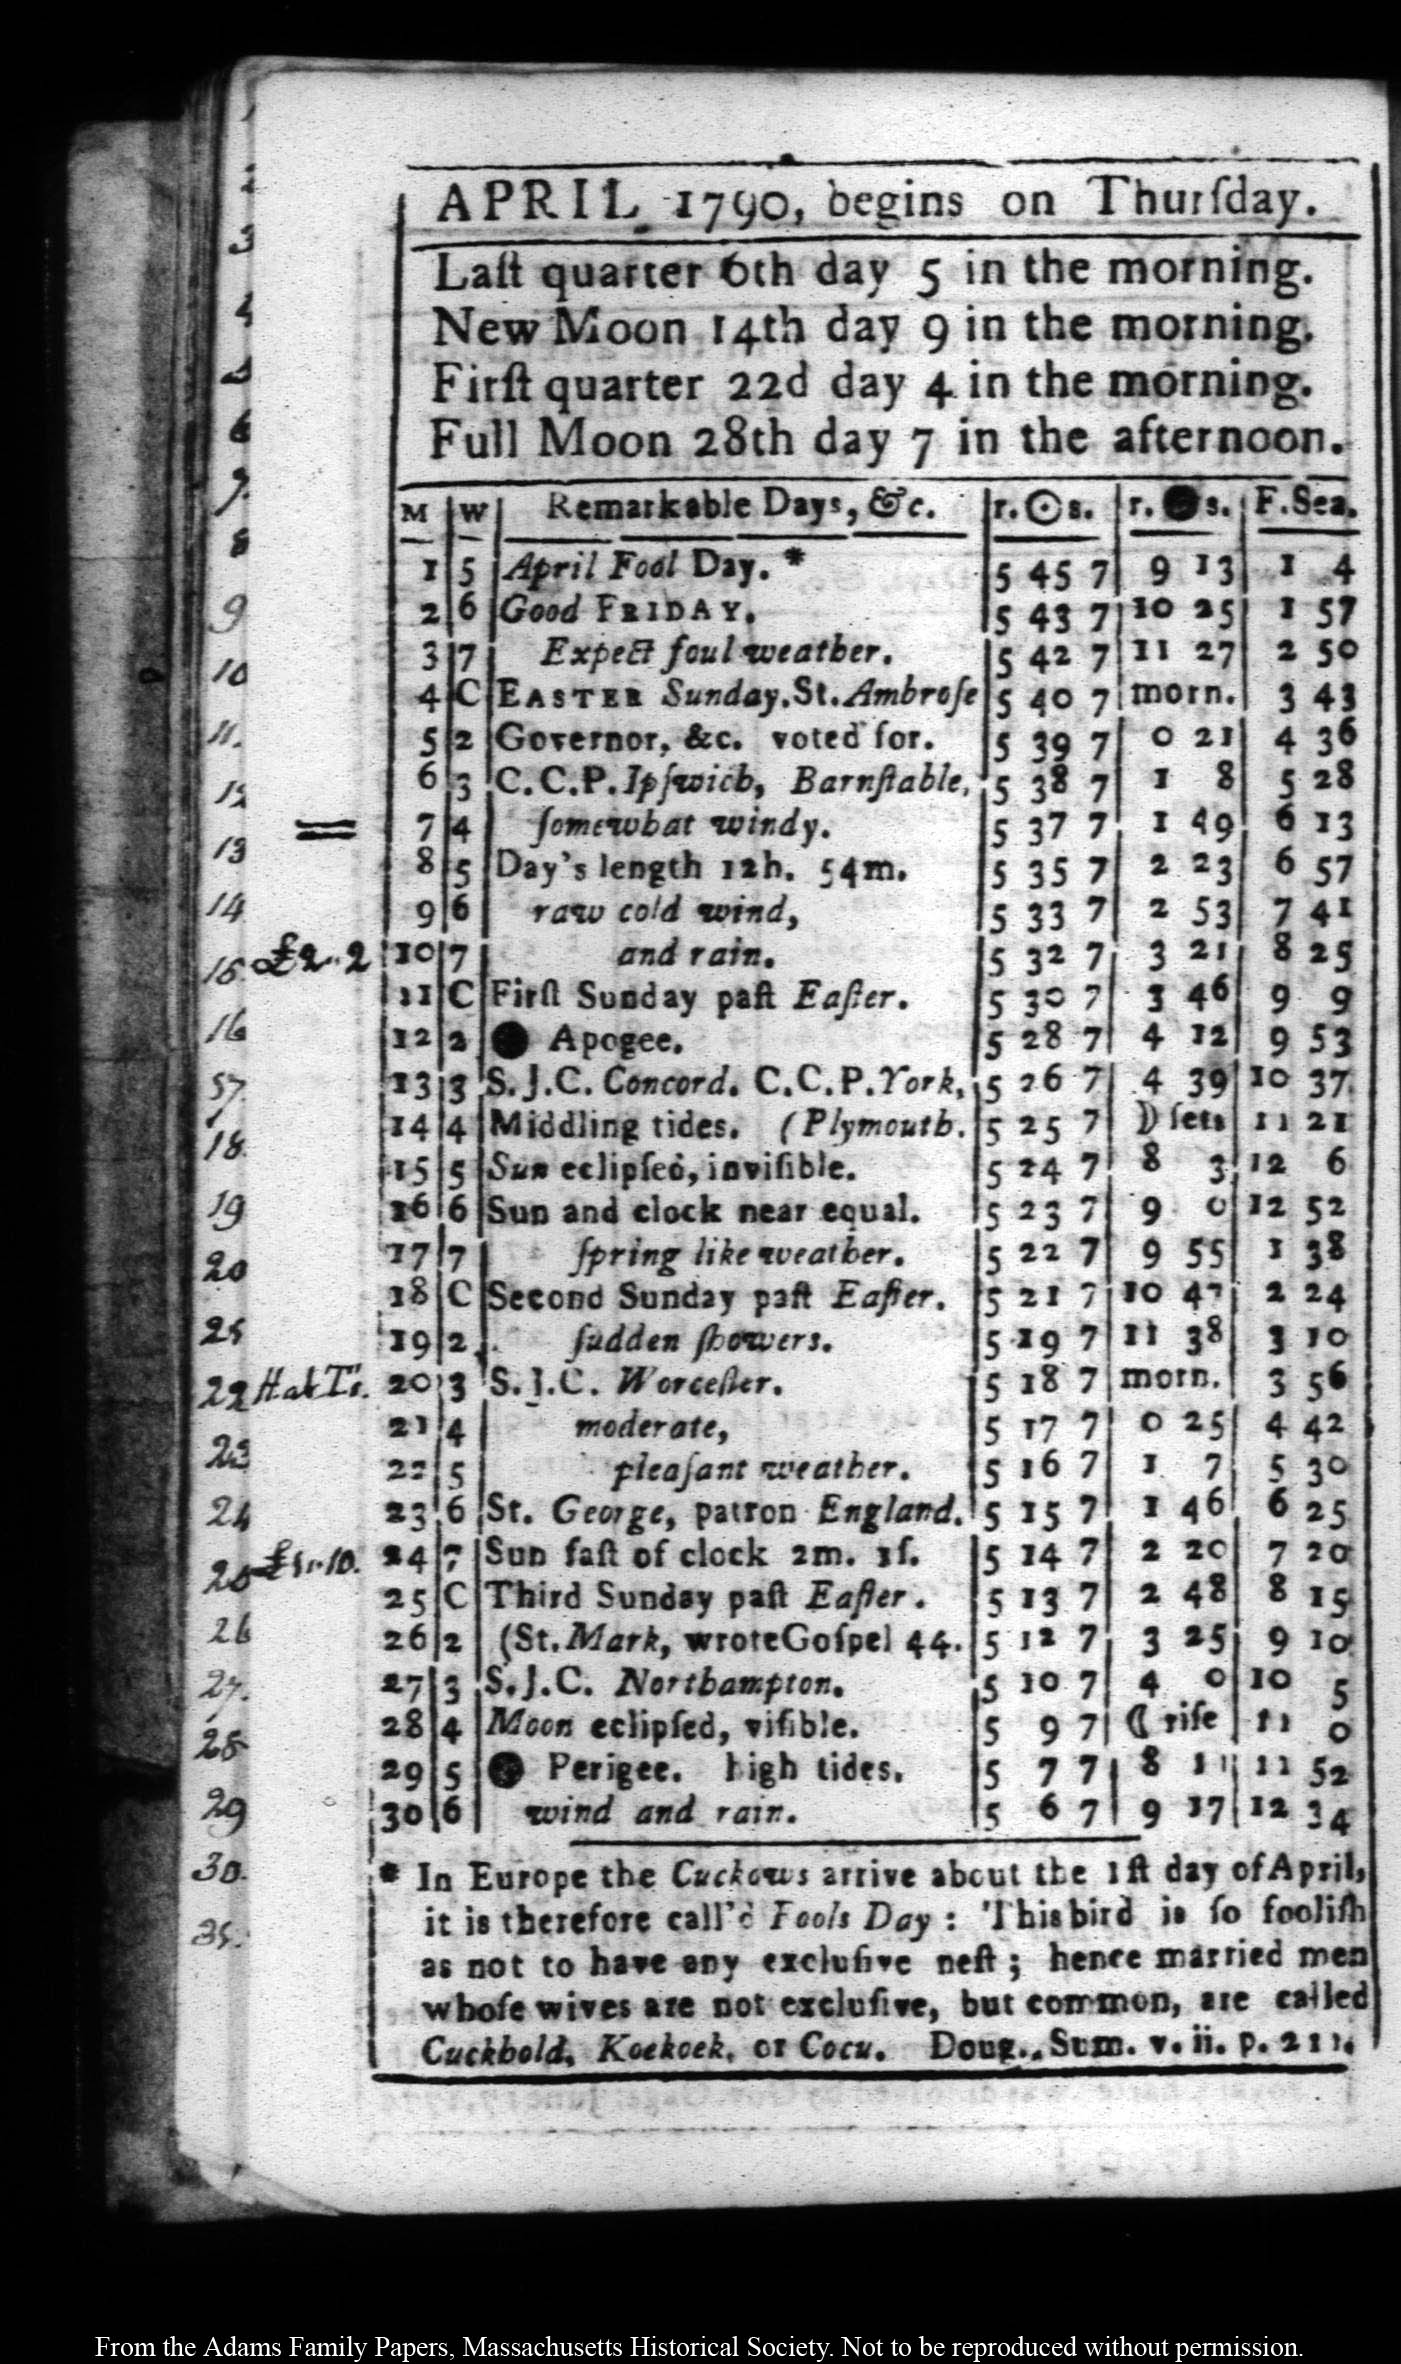 APRIL 1790, begins on Thurſday.
Laſt quarter 6th day 5 in the morning.
New Moon 14th day 9 in the morning.
Firſt quarter 22d day 4 in the morning.
Full Moon 28th day 7 in the afternoon.
M W Remarkable Days, &c. r.☉s. r.●s. F.Sea.
1 5 April Fool Day. * 5 45 7 9 13 1 4
2 6 Good FRIDAY. 5 43 7 10 25 1 57
3 7 Expect foul weather. 5 42 7 11 27 2 50
4 C EASTER Sunday. St. Ambroſe 5 40 7 morn. 3 43
5 2 Governor, &c. voted for. 5 39 7 0 21 4 36
6 3 C.C.P. Ipſwich, Barnſtable, 5 38 7 1 8 5 28
= 7 4 ſomewhat windy. 5 37 7 1 49 6 13
8 5 Day's length 12h. 54m. 5 35 7 2 23 6 57
9 6 raw cold wind, 5 33 7 2 53 7 41
£2..2 10 7 and rain. 5 32 7 3 21 8 25
11 C Firſt Sunday paſt Eaſter. 5 30 7 3 46 9 9
12 2 ● Apogee. 5 28 7 4 12 9 53
13 3 S.J.C. Concord. C.C.P. York, 5 26 7 4 39 10 37
14 4 Middling tides. (Plymouth. 5 25 7 ☽ ſets 11 21
15 5 Sun eclipſed, inviſible. 5 24 7 8 3 12 6
16 6 Sun and clock near equal. 5 23 7 9 0 12 52
17 7 ſpring like weather. 5 22 7 9 55 1 38
18 C Second Sunday paſt Eaſter. 5 21 7 10 47 2 24
19 2 ſudden ſhowers. 5 19 7 11 38 3 10
20 3 S.J.C. Worceſter. 5 18 7 morn. 3 56
21 4 moderate, 5 17 7 0 25 4 42
22 5 pleaſant weather. 5 16 7 1 7 5 30
23 6 St. George, patron England. 5 15 7 1 46 6 25
24 7 Sun faſt of clock 2m. 1ſ. 5 14 7 2 20 7 20
25 C Third Sunday paſt Eaſter. 5 13 7 2 48 8 15
26 2 (St. Mark, wrote Goſpel 44. 5 12 7 3 25 9 10
27 3 S.J.C. Northampton. 5 10 7 4 0 10 5
28 4 Moon eclipſed, viſible. 5 9 7 ☾ riſe 11 0
29 5 ● Perigee. high tides. 5 7 7 8 11 52
30 6 wind and rain. 5 6 7 9 17 12 34
* In Europe the Cuckows arrive about the 1ſt day of April,
it is therefore call'd Fools Day: This bird is ſo fooliſh
as not to have any excluſive neſt; hence married men
whoſe wives are not excluſive, but common, are called
Cuckhold, Koekoek, or Cocu. Doug. Sum. v. ii. p. 211.
3
4
6
7.
8
9
10
11.
12
13
14
15
16
18.
19
20
22
23
24
26
27.
28
29
30.
From the Adams Family Papers, Massachusetts Historical Society. Not to be reproduced without permission.